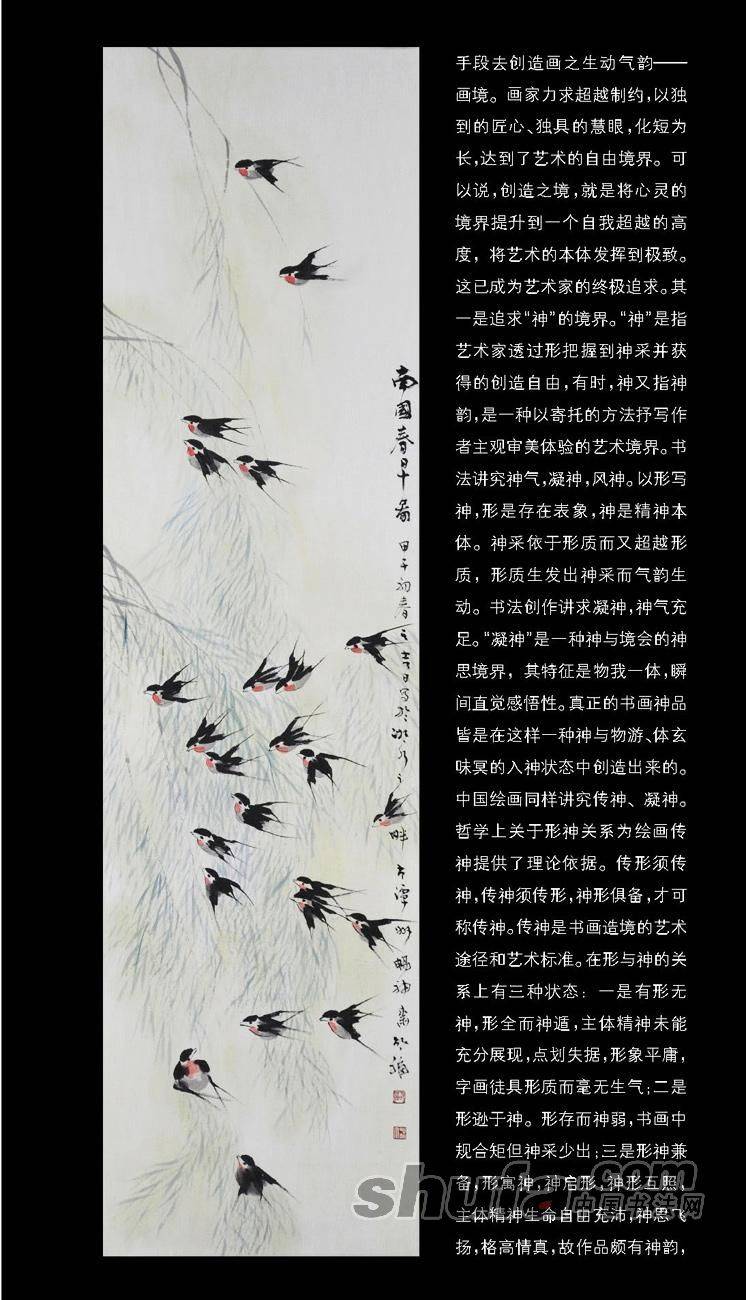 南國春早圖
甲午初春之吉日寫於湘
畔
手段去创造画之生动气韵——
画境。画家力求超越制约，以独
到的匠心、独具的慧眼，化短为
长，达到了艺术的自由境界。可
以说，创造之境，就是将心灵的
境界提升到一个自我超越的高
度，将艺术的本体发挥到极致。
这已成为艺术家的终极追求。其
一是追求“神”的境界。“神”是指
艺术家透过形把握到神采并获
得的创造自由，有时，神又指神
韵，是一种以寄托的方法抒写作
者主观审美体验的艺术境界。书
法讲究神气，凝神，风神。以形写
神，形是存在表象，神是精神本
体。神采依于形质而又超越形
质，形质生发出神采而气韵生
动。书法创作讲求凝神，神气充
足。“凝神”是一种神与境会的神
思境界，其特征是物我一体，瞬
间直觉感悟性。真正的书画神品
皆是在这样一种神与物游、体玄
味冥的入神状态中创造出来的。
中国绘画同样讲究传神、凝神。
哲学上关于形神关系为绘画传
神提供了理论依据。传形须传
神，传神须传形，神形俱备，才可
称传神。传神是书画造境的艺术
途径和艺术标准。在形与神的关
系上有三种状态：一是有形无
神，形全而神遁，主体精神未能
充分展现，点划失据，形象平庸，
字画徒具形质而毫无生气；二是
形逊于神。形存而神弱，书画中
规合矩但神采少出；三是形神兼
备，形寓神，神启形，神形互照。
主体精神生命自由充沛，神思飞
扬，格高情真，故作品颇有神韵，
shufa.com
中国书法网